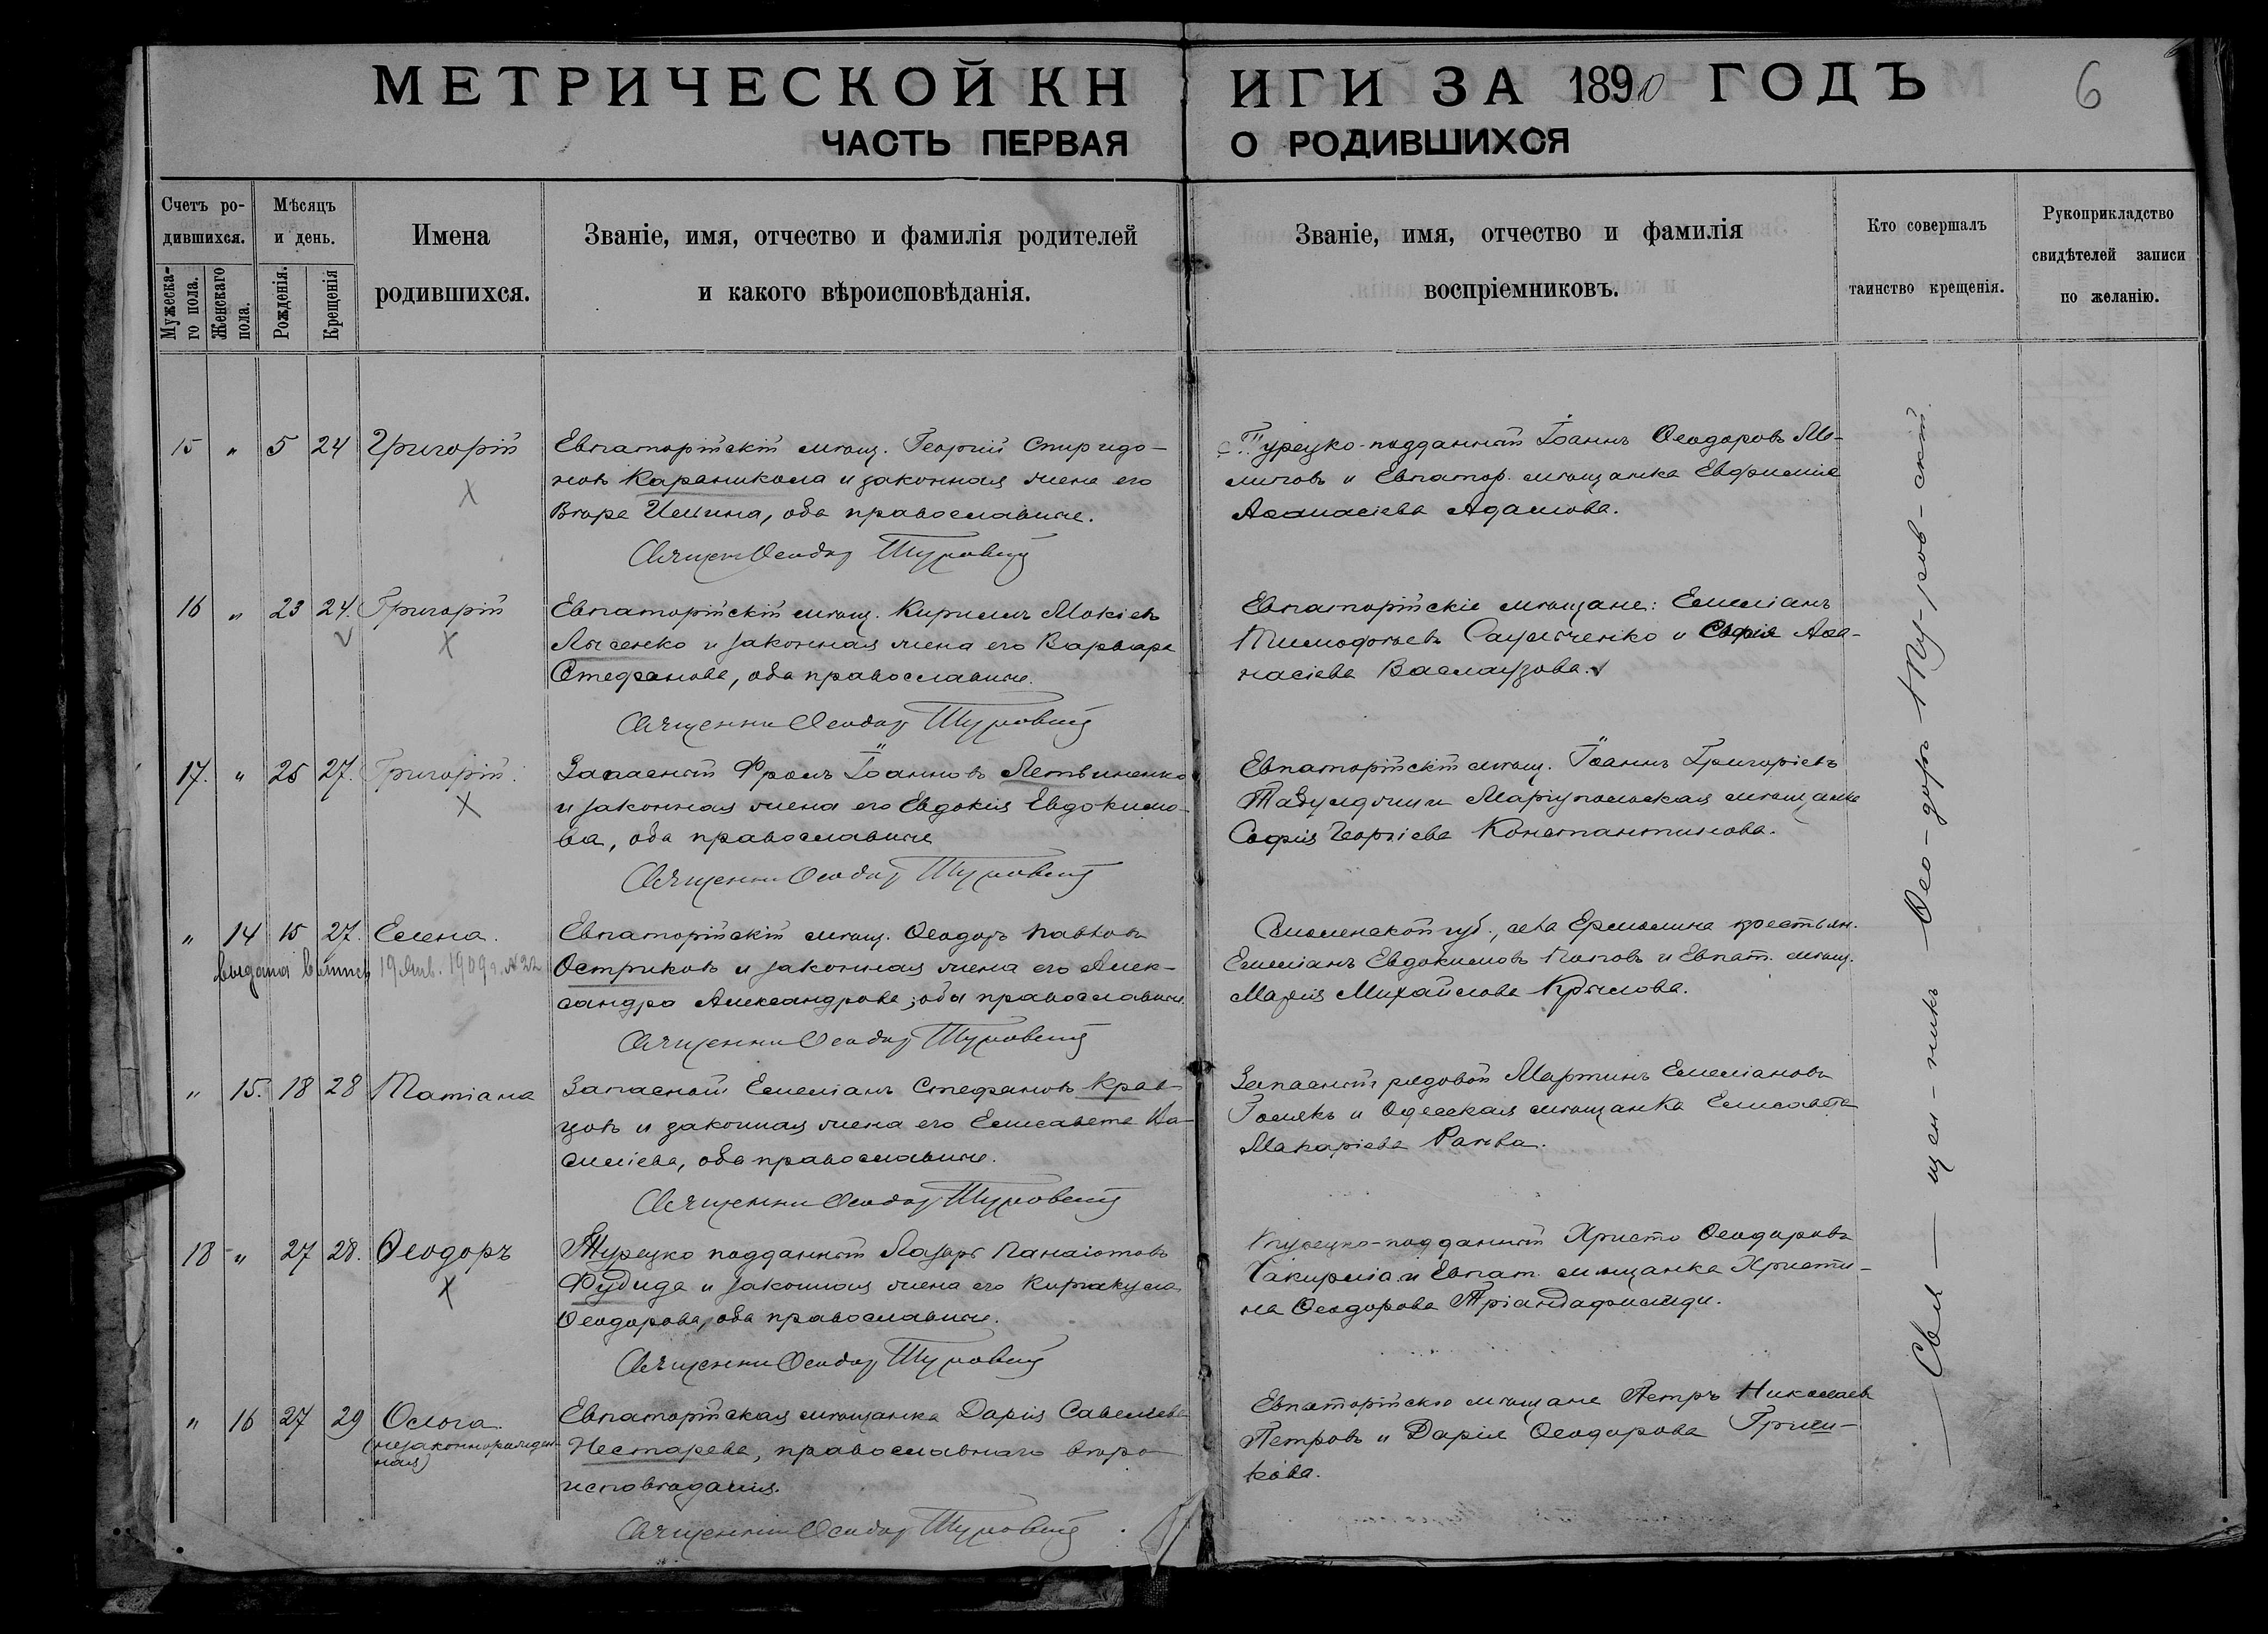 МЕТРИЧЕСКОЙ КНИГИ ЗА 1890 ГОДЪ
6
ЧАСТЬ ПЕРВАЯ О РОДИВШИХСЯ
Счетъ ро-
дившихся.
Мужеска-
го пола.
Женскаго
пола.
Мѣсяцъ
и день.
Рожденія.
Крещенія
Имена
родившихся.
Званіе, имя, отчество и фамилія родителей
и какого вѣроисповѣданія.
Званіе, имя, отчество и фамилія
воспріемниковъ.
Кто совершалъ
таинство крещенія.
Рукоприкладство
свидѣтелей записи
по желанію.
15 " 5 24 Григорій
Евпаторійскій мѣщ. Георгій Спиридо-
новъ Караникола и законная жена его
Вѣра Ильина, оба православные.
Священ Ѳеодор Туровскій
Турецко-подданный Іоаннъ Ѳеодоровъ Мо-
линовъ и Евпатор. мѣщанка Евфимія
Аѳанасіева Адамова.
16 " 23 24. Григорій
Евпаторійскій мѣщ. Кириллъ Мокіевъ
Лысенко и законная жена его Варвара
Стефанова, оба православные.
Священни Ѳеодор Туровскій
Евпаторійскіе мѣщане: Емеліанъ
Тимофѣевъ и Софія Аѳа-
насіева
17. " 25 27. Григорій.
Запасный Фролъ Іоанновъ Литвиненко
и законная жена его Евдокія Евдокимо-
ва, оба православные
Священни Ѳеодор Туровскій
Евпаторійскій мѣщ. Іоаннъ Григоріевъ
и Маріупольская мѣщанка
Софія Георгіева Константинова.
" 14 15 27. Елена.
выдана выпись 19 Янв. 1909 г. № 22
Евпаторійскій мѣщ. Ѳеодоръ Павловъ
Остриковъ и законная жена его Алек-
сандра Александрова, оба православные.
Священни Ѳеодор Туровскій
Смоленской губ., села Ермолина крестьян.
Емеліанъ Евдокимовъ Поповъ и Евпат. мѣщ.
Марія Михайлова Крылова.
" 15. 18 28 Татіана
Запасный Емеліанъ Стефановъ Крав-
цовъ и законная жена его Елисавета Ва-
силіева, оба православные.
Священни Ѳеодор Туровскій
Запасный рядовой Мартинъ Емеліановъ
и Одесская мѣщанка Елисавета
Макаріева
18 " 27 28. Ѳеодоръ
Турецко подданный Лазарь Панаіотовъ
Фудида и законная жена его Киріакула
Ѳеодорова, оба православные.
Священни Ѳеодор Туровскій
Турецко-подданный Христо Ѳеодоровъ
и Евпат. мѣщанка Христи-
на Ѳеодорова Тріандафилиди.
" 16 27 29 Ольга.
(незаконнорожден-
ная)
Евпаторійская мѣщанка Дарія Савельева
Нестарева, православнаго вѣро-
исповѣданія.
Священни Ѳеодор Туровскій
Евпаторійскіе мѣщане Петръ Николаевъ
Петровъ и Дарія Ѳеодорова
кова.
Свя — щен — никъ Ѳео — доръ Ту — ров — скій.